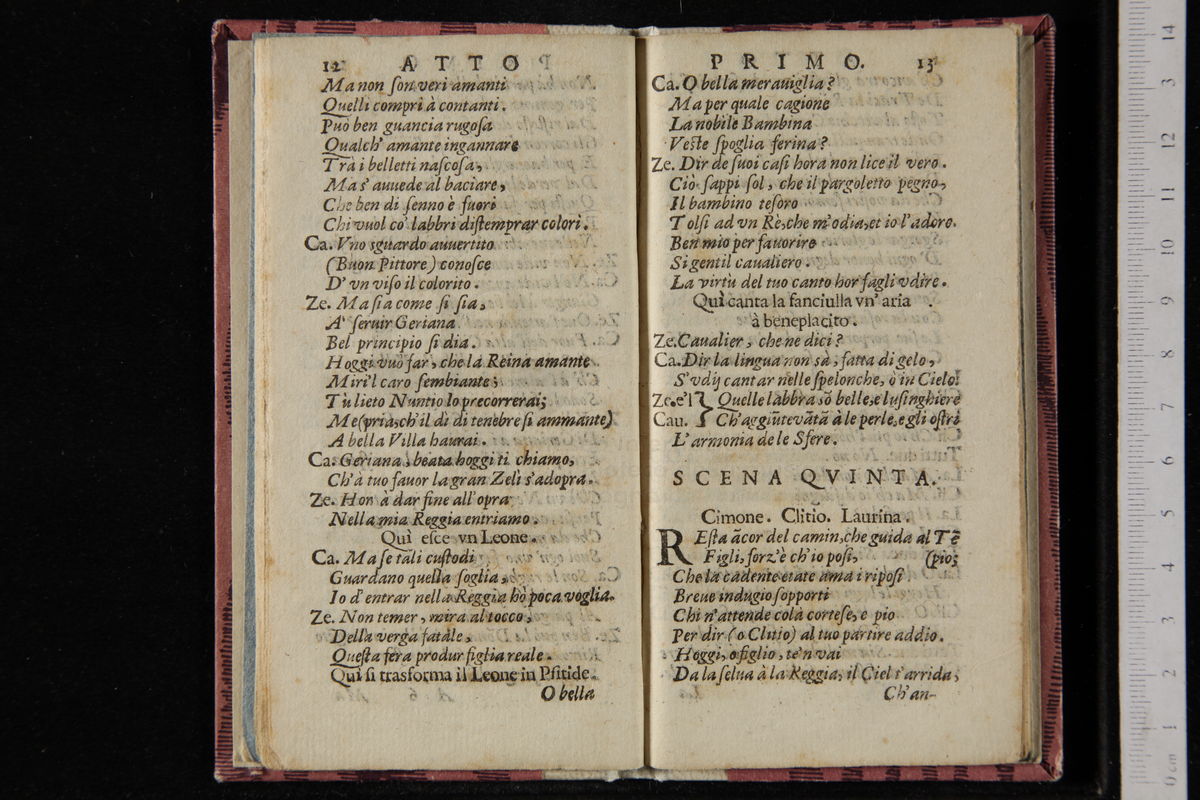 12 ATTO
Ma non ſon veri amanti
Quelli compri à contanti.
Può ben guancia rugoſa
Qualch' amante ingannare
Trà i belletti naſcoſa,
Ma s' auuede al baciare,
Che ben di ſenno è fuori
Chi vuol co' labbri diſtemprar colori.
Ca. Vno sguardo auuertito
(Buon Pittore) conoſce
D' vn viſo il colorito.
Ze. Ma ſia come ſi ſia,
A' ſeruir Geriana
Bel principio ſi dia.
Hoggi vuò far, che la Reina amante
Miri'l caro ſembiante;
Tù lieto Nuntio lo precorrerai;
Me (pria, ch'il dì di tenebre ſi ammante)
A bella Villa haurai.
Ca. Geriana, beata hoggi ti chiamo,
Ch'à tuo fauor la gran Zelì s'adopra.
Ze. Hor à dar fine all'opra
Nella mia Reggia entriamo.
Quì eſce vn Leone.
Ca. Ma ſe tali cuſtodi
Guardano quella ſoglia,
Io d' entrar nella Reggia hò poca voglia.
Ze. Non temer, mira al tocco,
Della verga fatale,
Queſta fera produr figlia reale.
Quì ſi trasforma il Leone in Pſitide.
O bella
PRIMO. 13
Ca. O bella merauiglia?
Ma per quale cagione
La nobile Bambina
Veſte ſpoglia ferina?
Ze. Dir de ſuoi caſi hora non lice il vero.
Ciò ſappi ſol, che il pargoletto pegno,
Il bambino teſoro
Tolſi ad vn Rè, che m'odia, et io l'adoro.
Ben mio per fauorire
Si gentil caualiero.
La virtù del tuo canto hor fagli vdire.
Quì canta la fanciulla vn' aria
à beneplacito.
Ze. Caualier, che ne dici?
Ca. Dir la lingua non sà, fatta di gelo,
S'vdij cantar nelle ſpelonche, ò in Cielo!
Ze. e'l } Quelle labbra sõ belle, e luſinghiere
Cau. } Ch'aggiũtevãtã à le perle, e gli oſtri
L'armonia de le Sfere.
SCENA QVINTA.
Cimone. Clitio. Laurina.
REſta ãcor del camin, che guida al Tẽ
Figli, forz'è ch'io poſi, (pio;
Che la cadente etate ama i ripoſi
Breue indugio ſopporti
Chi n'attende colà corteſe, e pio
Per dir (o Clitio) al tuo partire addio.
Hoggi, o figlio, te'n vai
Da la ſelua à la Reggia, il Ciel t'arrida,
Ch'an-